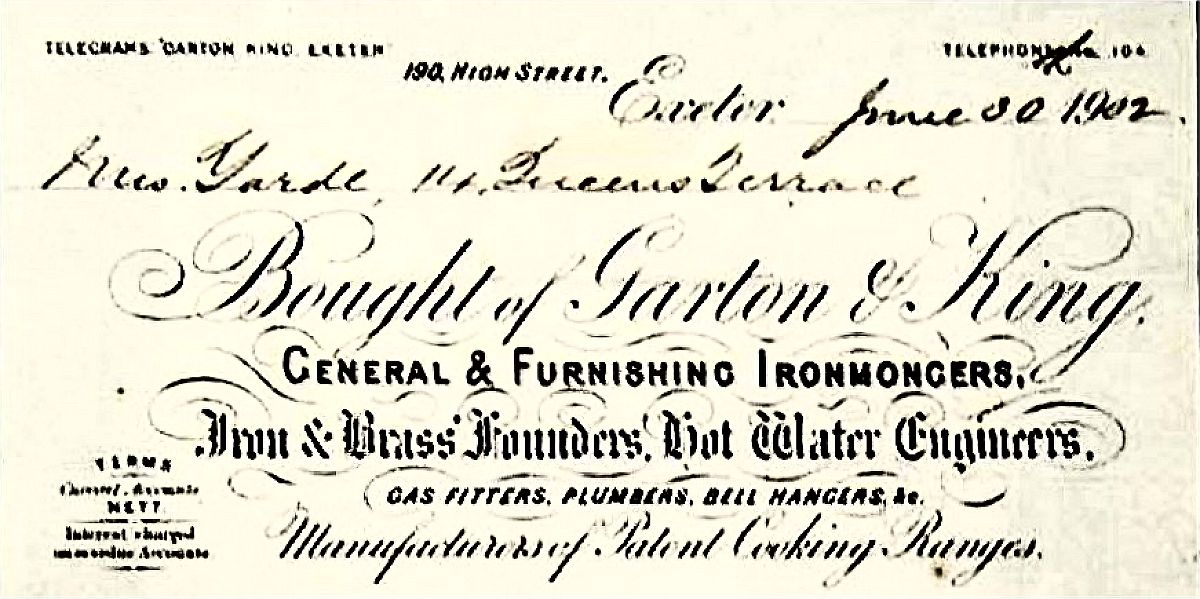 TELEGRAMS "GARTON KING, EXETER"
TELEPHONE No. 104
190, HIGH STREET.
Exeter June 30 1902.
Mrs. Yarde, 14, Queens Terrace
Bought of Garton & King.
GENERAL & FURNISHING IRONMONGERS,
Iron & Brass Founders, Hot Water Engineers,
GAS FITTERS, PLUMBERS, BELL HANGERS, &c.
Manufacturers of Patent Cooking Ranges.
TERMS
Current Accounts
NETT
Interest charged
on overdue Accounts